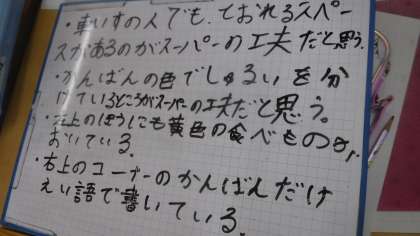 ・車いすの人でも、ておれるスペー
スがあるのがスーパーの工夫だと思う。
・かんばんの色でしゅるいを分
けているところがスーパーの工夫だと思う。
・左上のほうにも黄色の食べものが
おいている。
・右上のコーナーのかんばんだけ
えい語で書いている。